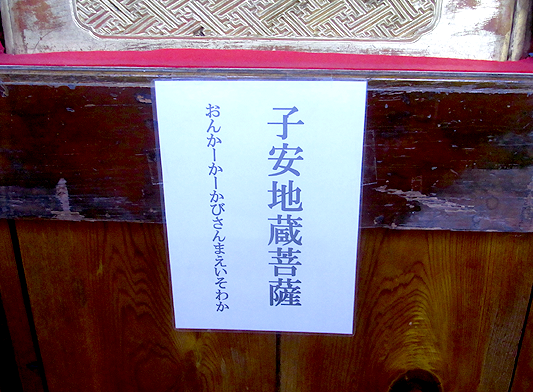 子安地蔵菩薩
おんかーかーかびさんまえいそわか